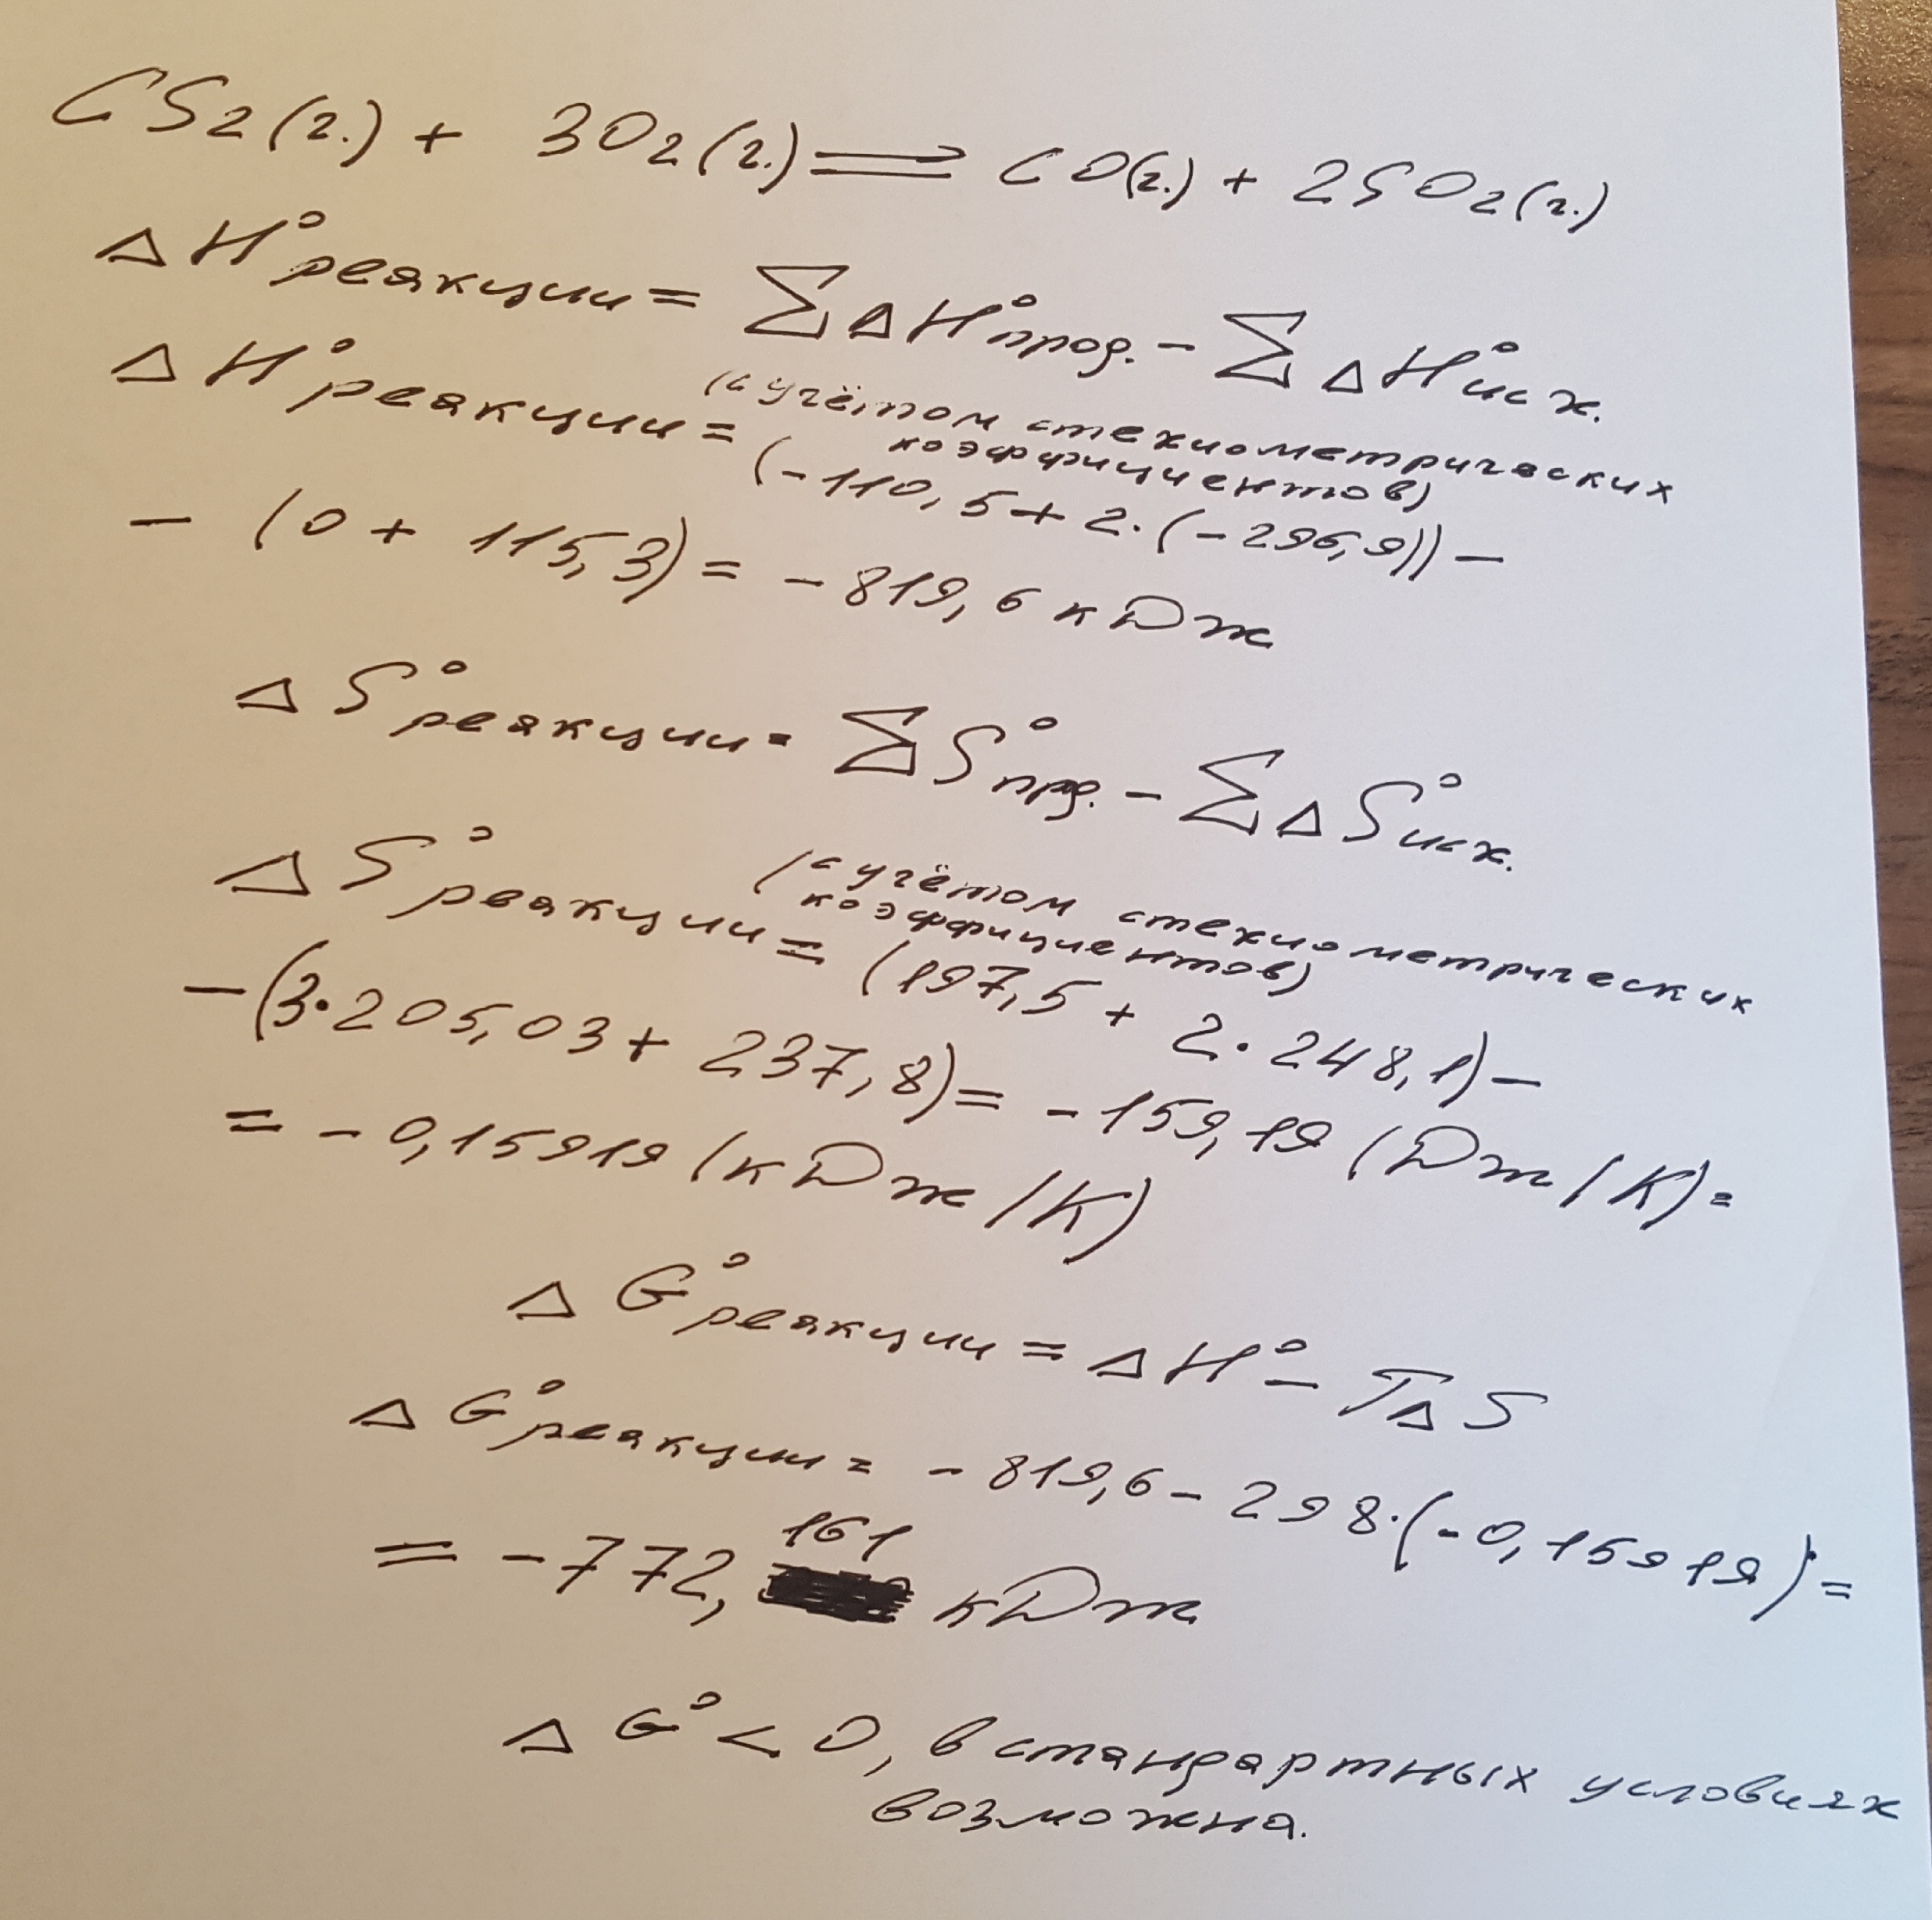 CS2(г.) + 3O2(г.) = CO(г.) + 2SO2(г.)
ΔH°реакции = ΣΔH°прод. - ΣΔH°исх.
(с учётом стехиометрических
коэффициентов)
ΔH°реакции = (-110,5 + 2·(-296,9)) -
- (0 + 115,3) = -819,6 кДж
ΔS°реакции = ΣS°прод. - ΣΔS°исх.
(с учётом стехиометрических
коэффициентов)
ΔS°реакции = (197,5 + 2·248,1) -
-(3·205,03 + 237,8) = -159,19 (Дж/К) =
= -0,15919 (кДж/К)
ΔG°реакции = ΔH° - TΔS
ΔG°реакции = -819,6 - 298·(-0,15919) =
= -772,161 кДж
ΔG° < 0, в стандартных условиях
возможна.